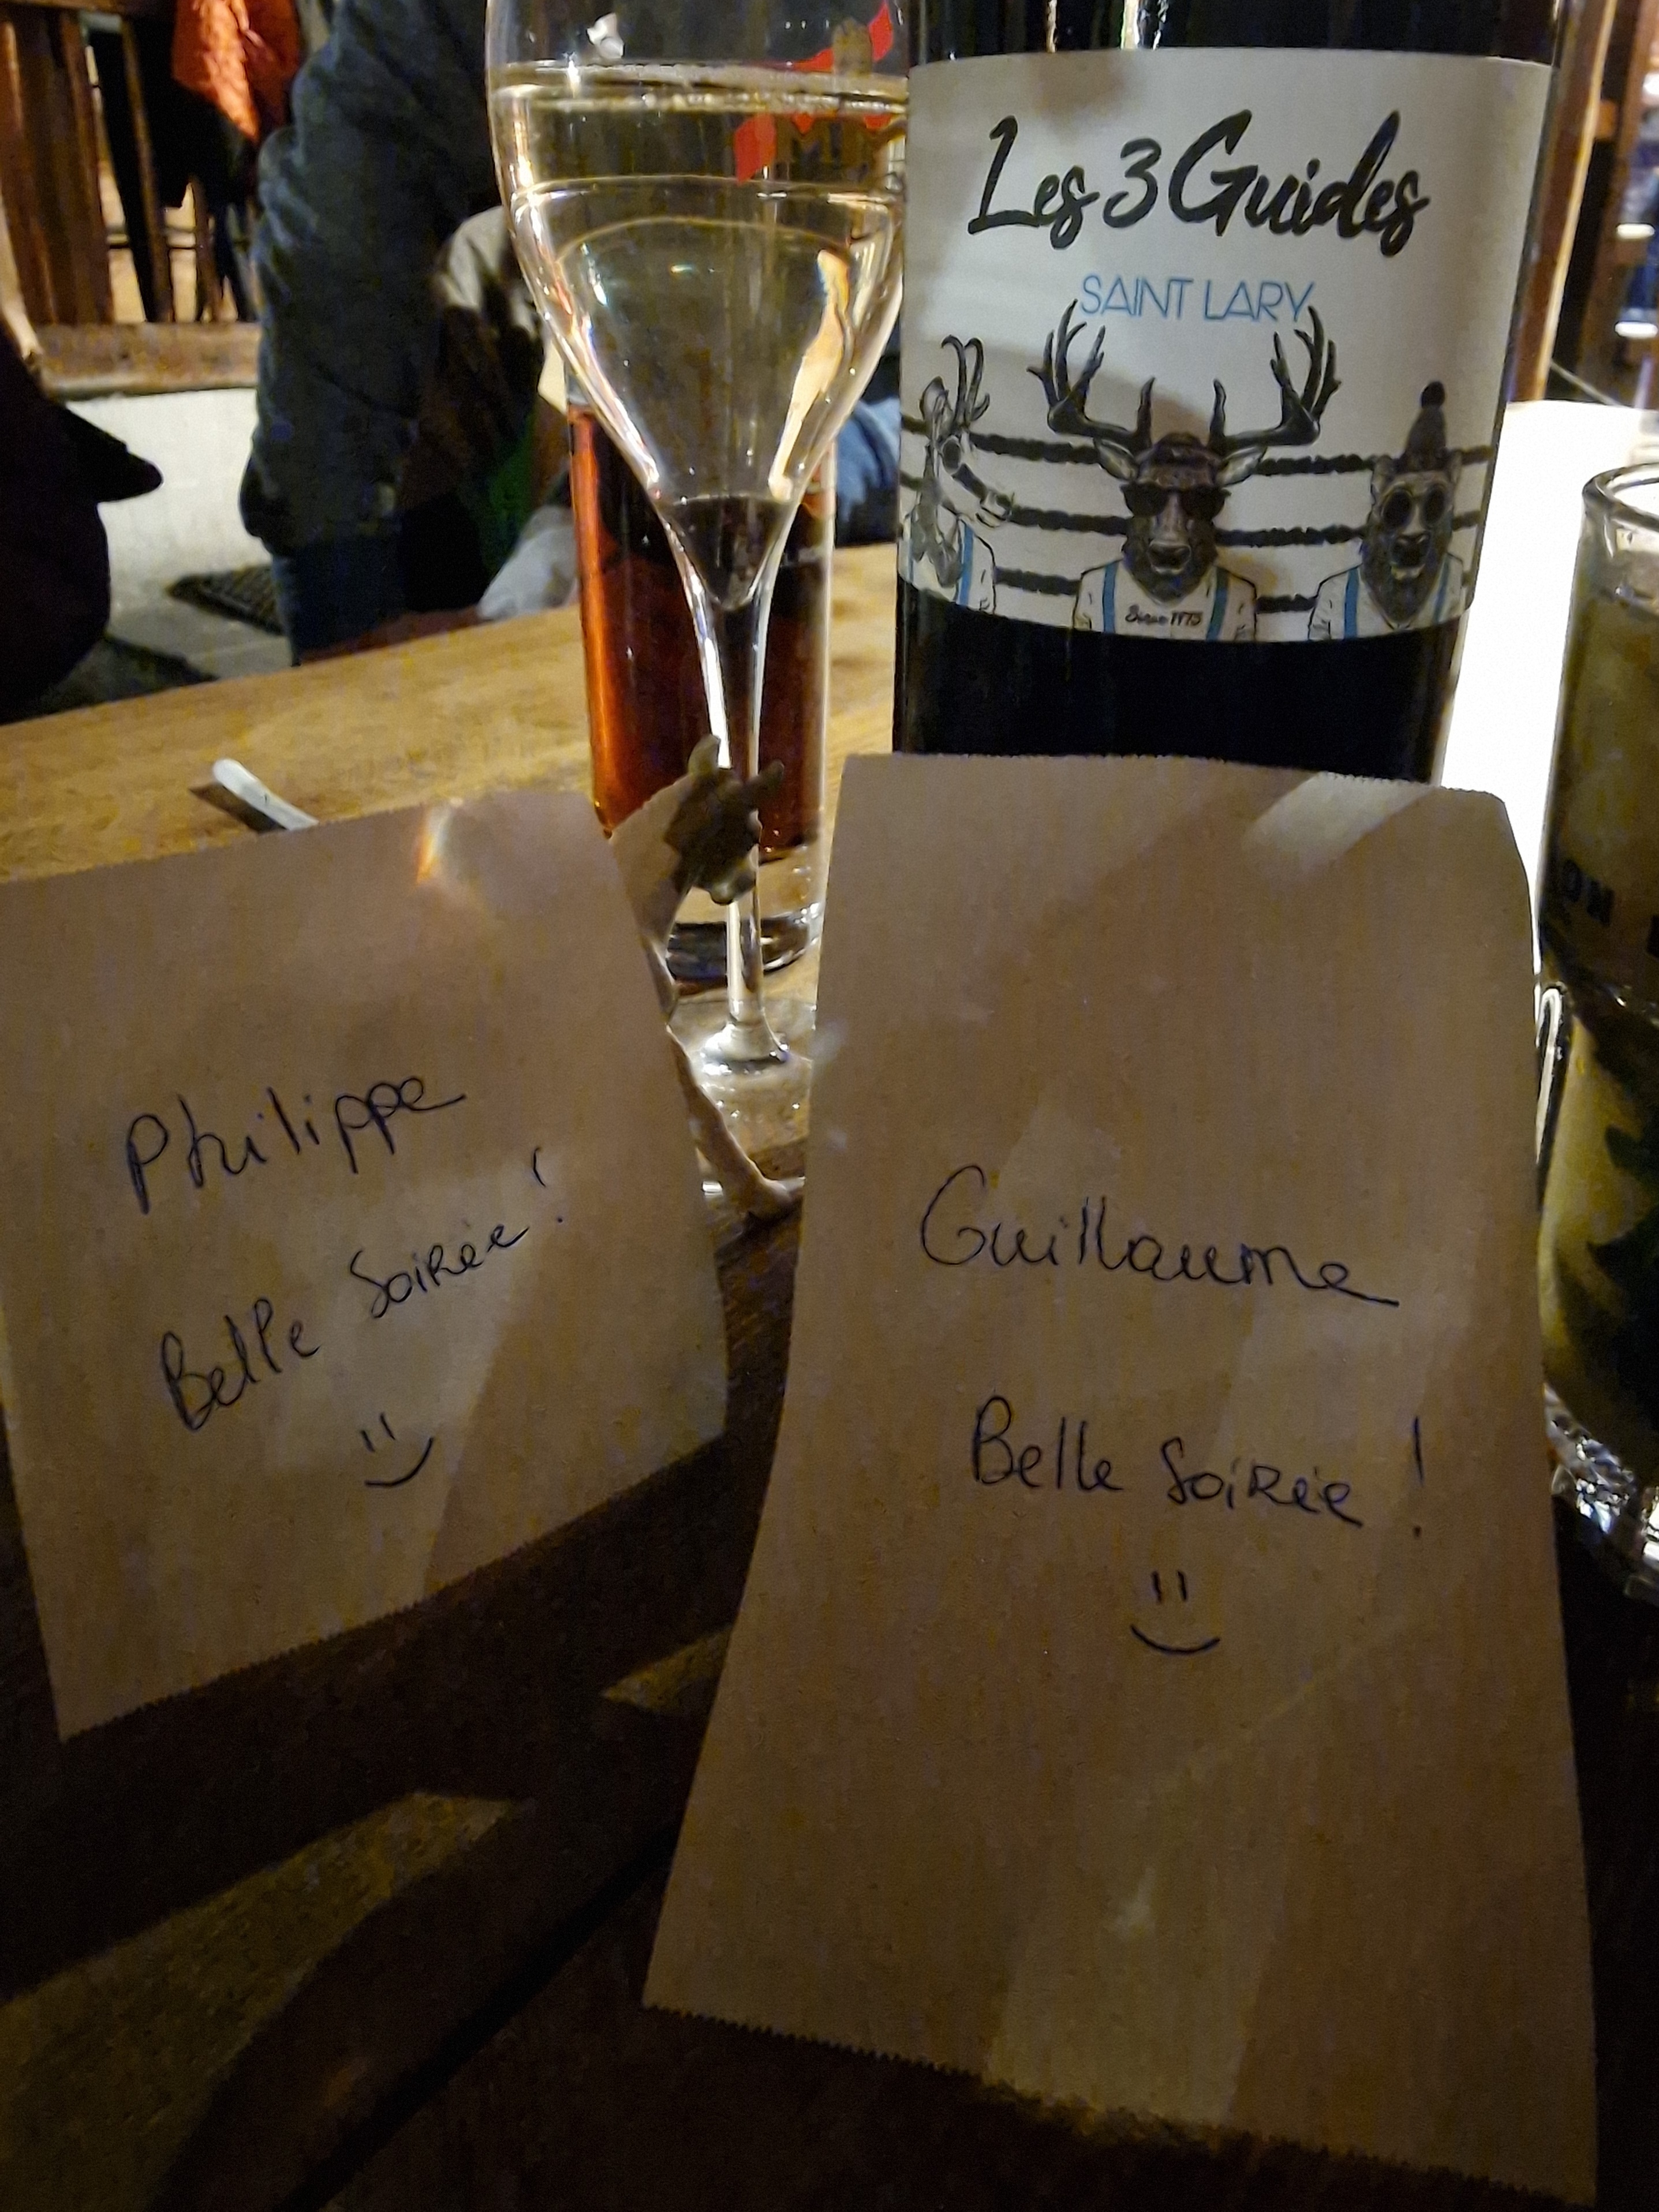 Les 3 Guides
SAINT LARY
Since 1973
Philippe
Belle Soirée !
Guillaume
Belle Soirée !